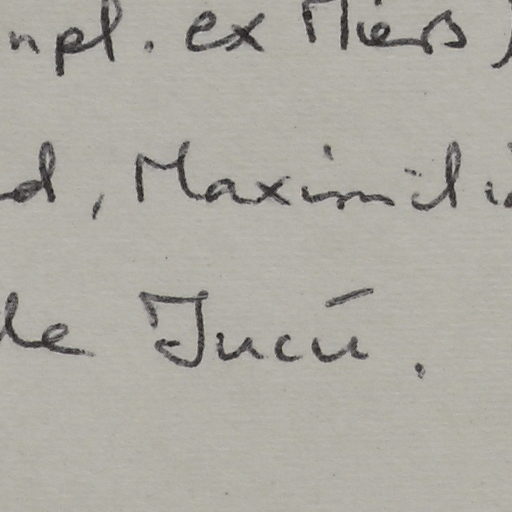 mpl. ex Miers)
d, Maximili
de Jucú.